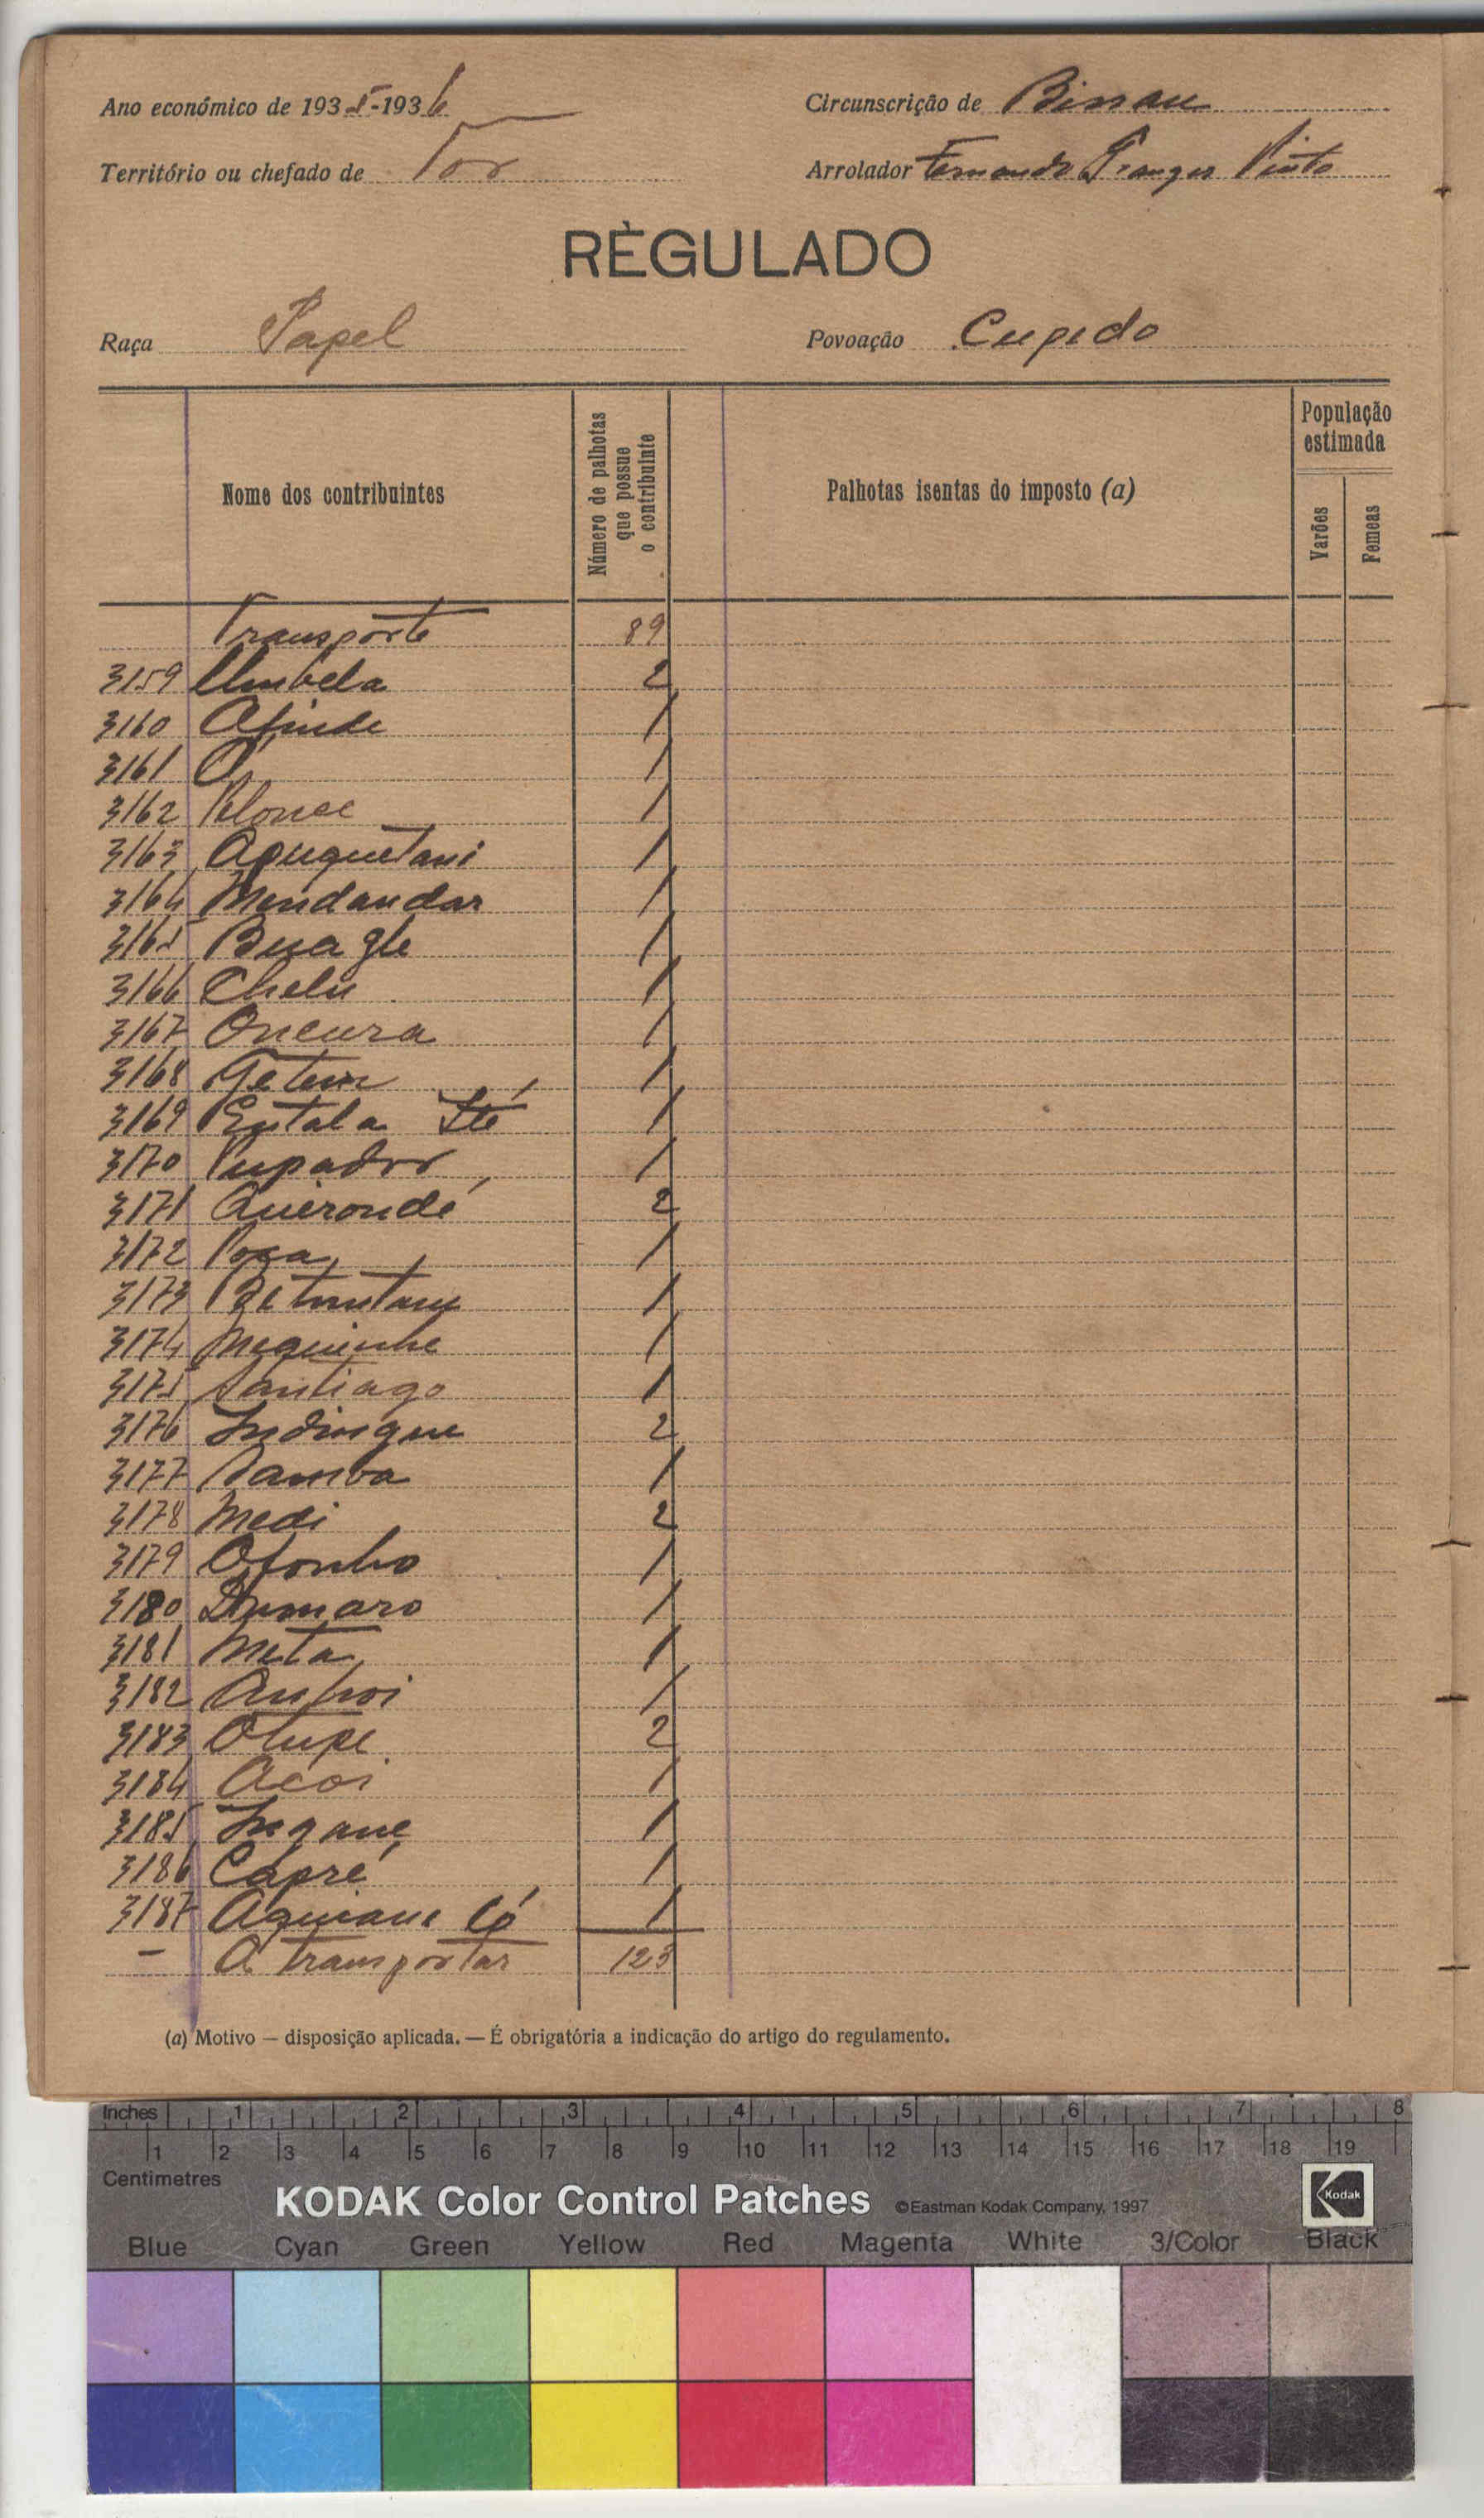 Ano económico de 1935-1936
Circunscrição de Bissau
Território ou chefado de Tor
Arrolador Fernando Pinto
RÈGULADO
Raça Papel
Povoação Cupedo
Nome dos contribuintes
Número de palhotas que possue o contribuinte
Palhotas isentas do imposto (a)
População estimada
Varões
Femeas
Transporte 89
3159 Umbela 2
3160 Afinde 1
3161 1
3162 1
3163 Apuguetani 1
3164 Mendandar 1
3165 Buagle 1
3166 Chelu 1
3167 Oncura 1
3168 1
3169 1
3170 Pupador 1
3171 Querondé 2
3172 1
3173 1
3174 Mequinhe 1
3175 Santiago 1
3176 Indingue 2
3177 Samba 1
3178 Medi 2
3179 Ofonho 1
3180 1
3181 Meta 1
3182 1
3183 Olupe 2
3184 Acoi 1
3185 Ingane 1
3186 Capré 1
3187 Aguiane Có 1
— A transportar 123
(a) Motivo — disposição aplicada. — É obrigatória a indicação do artigo do regulamento.
Inches 1 2 3 4 5 6 7 8
1 2 3 4 5 6 7 8 9 10 11 12 13 14 15 16 17 18 19
Centimetres
KODAK Color Control Patches ©Eastman Kodak Company, 1997 Kodak
Blue Cyan Green Yellow Red Magenta White 3/Color Black